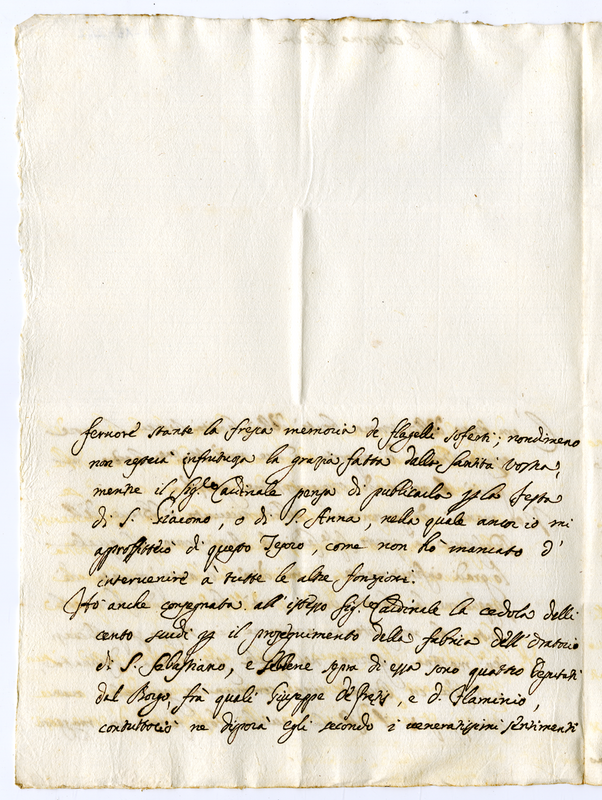 fervore stante la fresca memoria de flagelli soferti; nondimeno
non resterà infrutuosa la grazia fatta dalla Santità Vostra,
mentre il Sig.re Cardinale pensa di publicarla p la festa
di S. Giacomo, o di S. Anna, nella quale ancor io mi
approffitterò di questo Tesoro, come non hò mancato d'
intervenire à tutte le altre fonzioni.
Hò anche consegnata all'istesso Sig.re Cardinale la cedola delli
cento scudi p il proseguimento della fabrica dell'Oratorio
di S. Sebastiano, e sebbene sopra di essa sono quattro Deputati
dal Borgo, frà quali Giuseppe , e D. Flaminio,
contuttociò ne disporà egli secondo i veneratissimi sentimenti